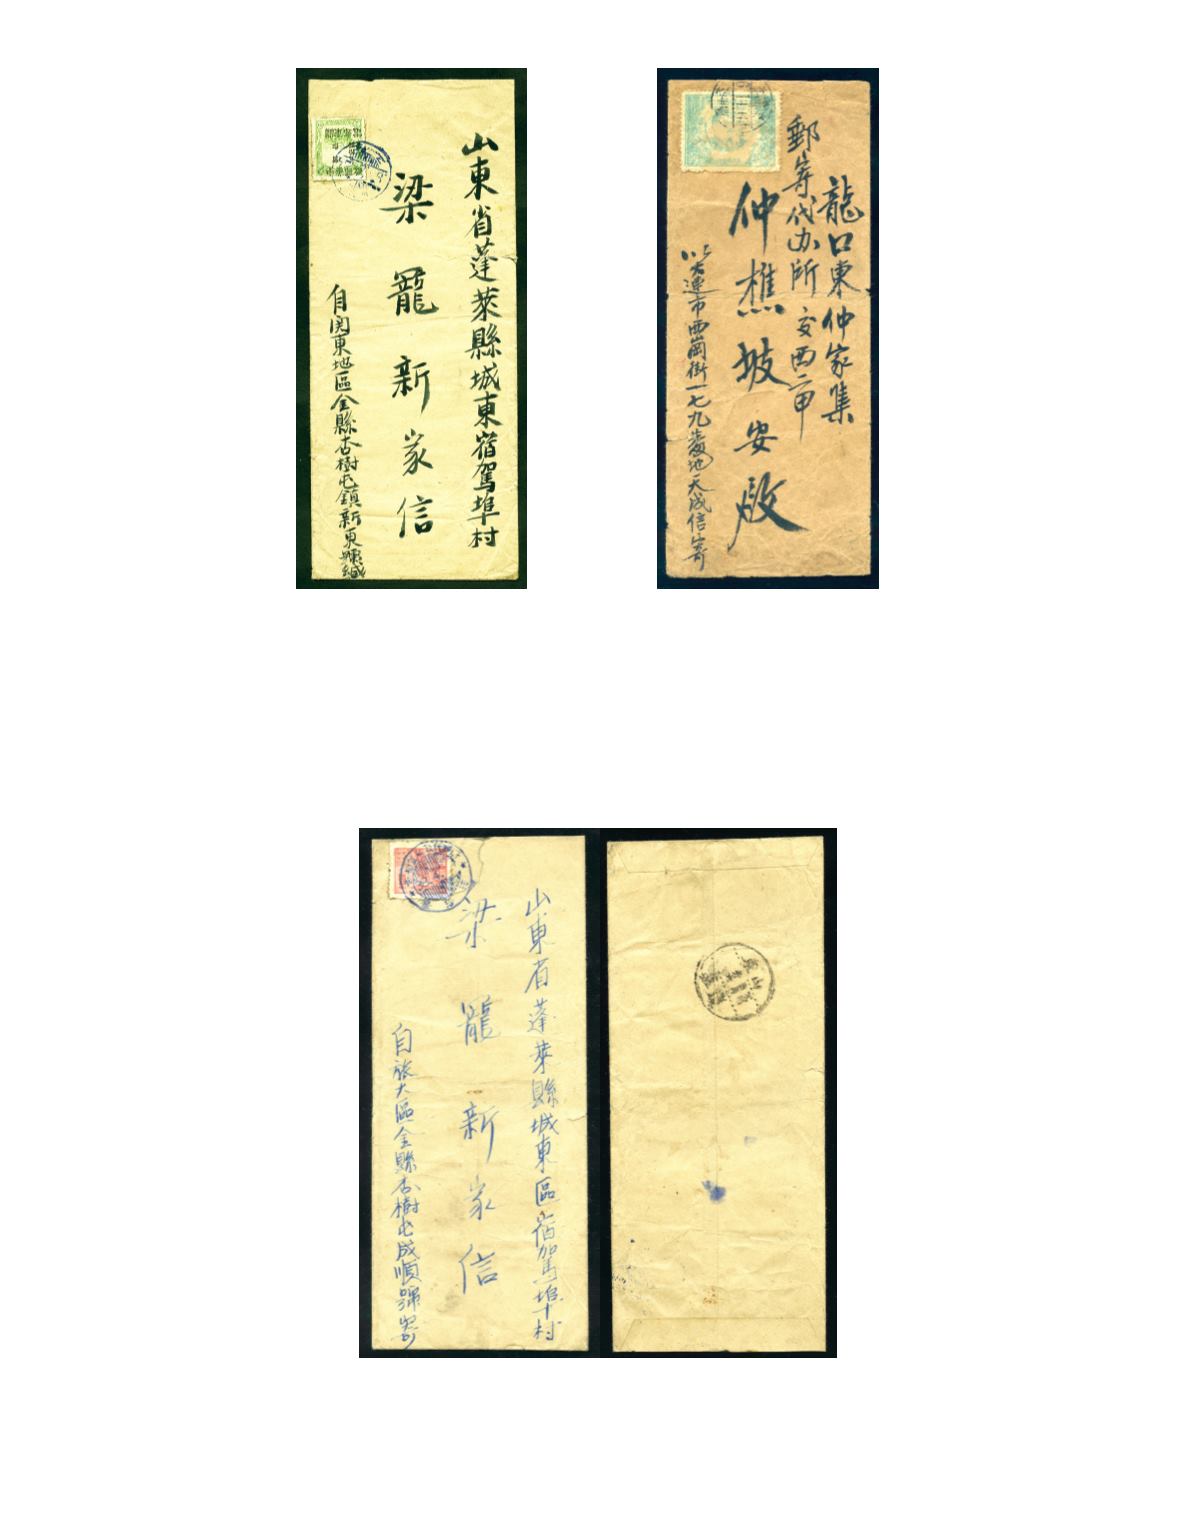 山東省蓬萊縣城東宿駕埠村
梁龍新家信
自関東地區金縣杏樹屯鎮新東號緘
龍口東仲家集
郵寄代办所交西二甲
仲樵坡安啟
大連市西崗街一七九番地天成信寄
山東省蓬萊縣城東區宿駕埠村
梁龍新家信
自旅大區金縣杏樹屯成順號寄